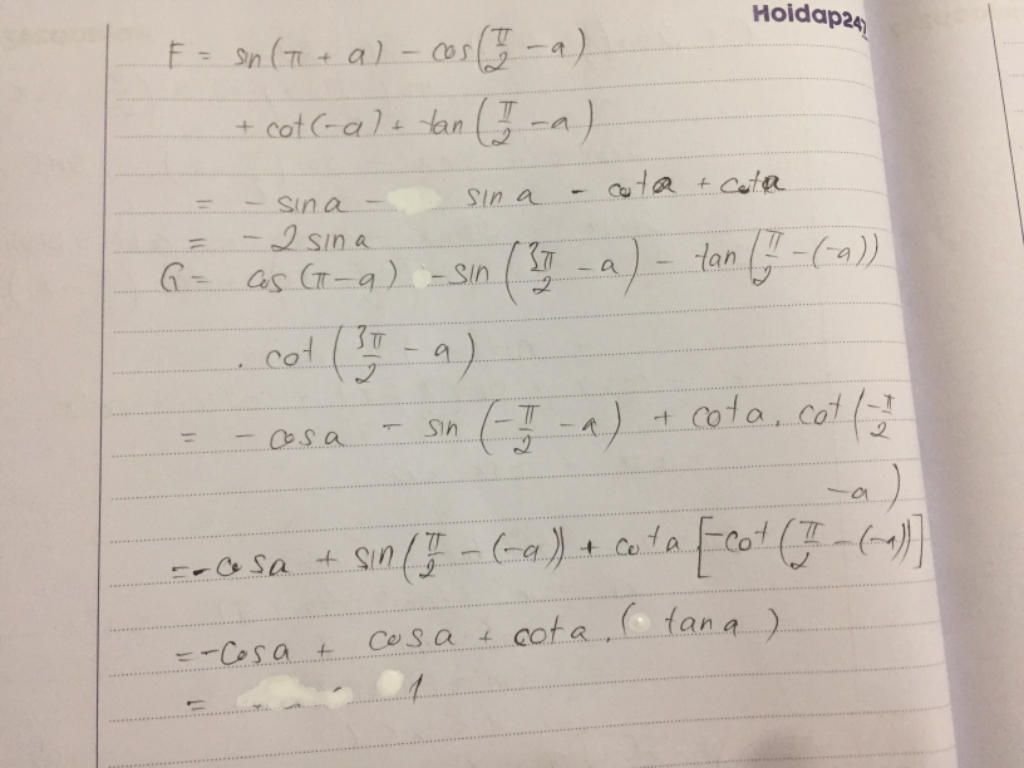 Hoidap247
F = sin(π + a) - cos(π/2 - a)
+ cot(-a) + tan(π/2 - a)
= - sina - sin a - cota + cota
= - 2 sin a
G = cos (π - a) - sin (3π/2 - a) - tan (π/2 - (-a))
. cot (3π/2 - a)
= - cosa - sin (-π/2 - a) + cota . cot (-π/2
- a)
= - cosa + sin (π/2 - (-a)) + cota [-cot (π/2 - (-a))]
= - cosa + cosa + cota . ( tan a )
= 1